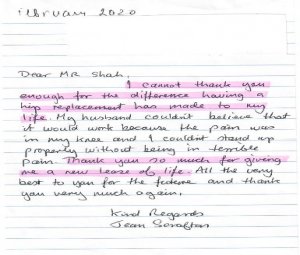 February 2020
Dear MR Shah,
I cannot thank you
enough for the difference having a
hip replacement has made to my
life. My husband couldn't believe that
it would work because the pain was
in my knee and I couldn't stand up
properly without being in terrible
pain. Thank you so much for giving
me a new lease of life. All the very
best to you for the future and thank
you very much again.
Kind Regards
Jean